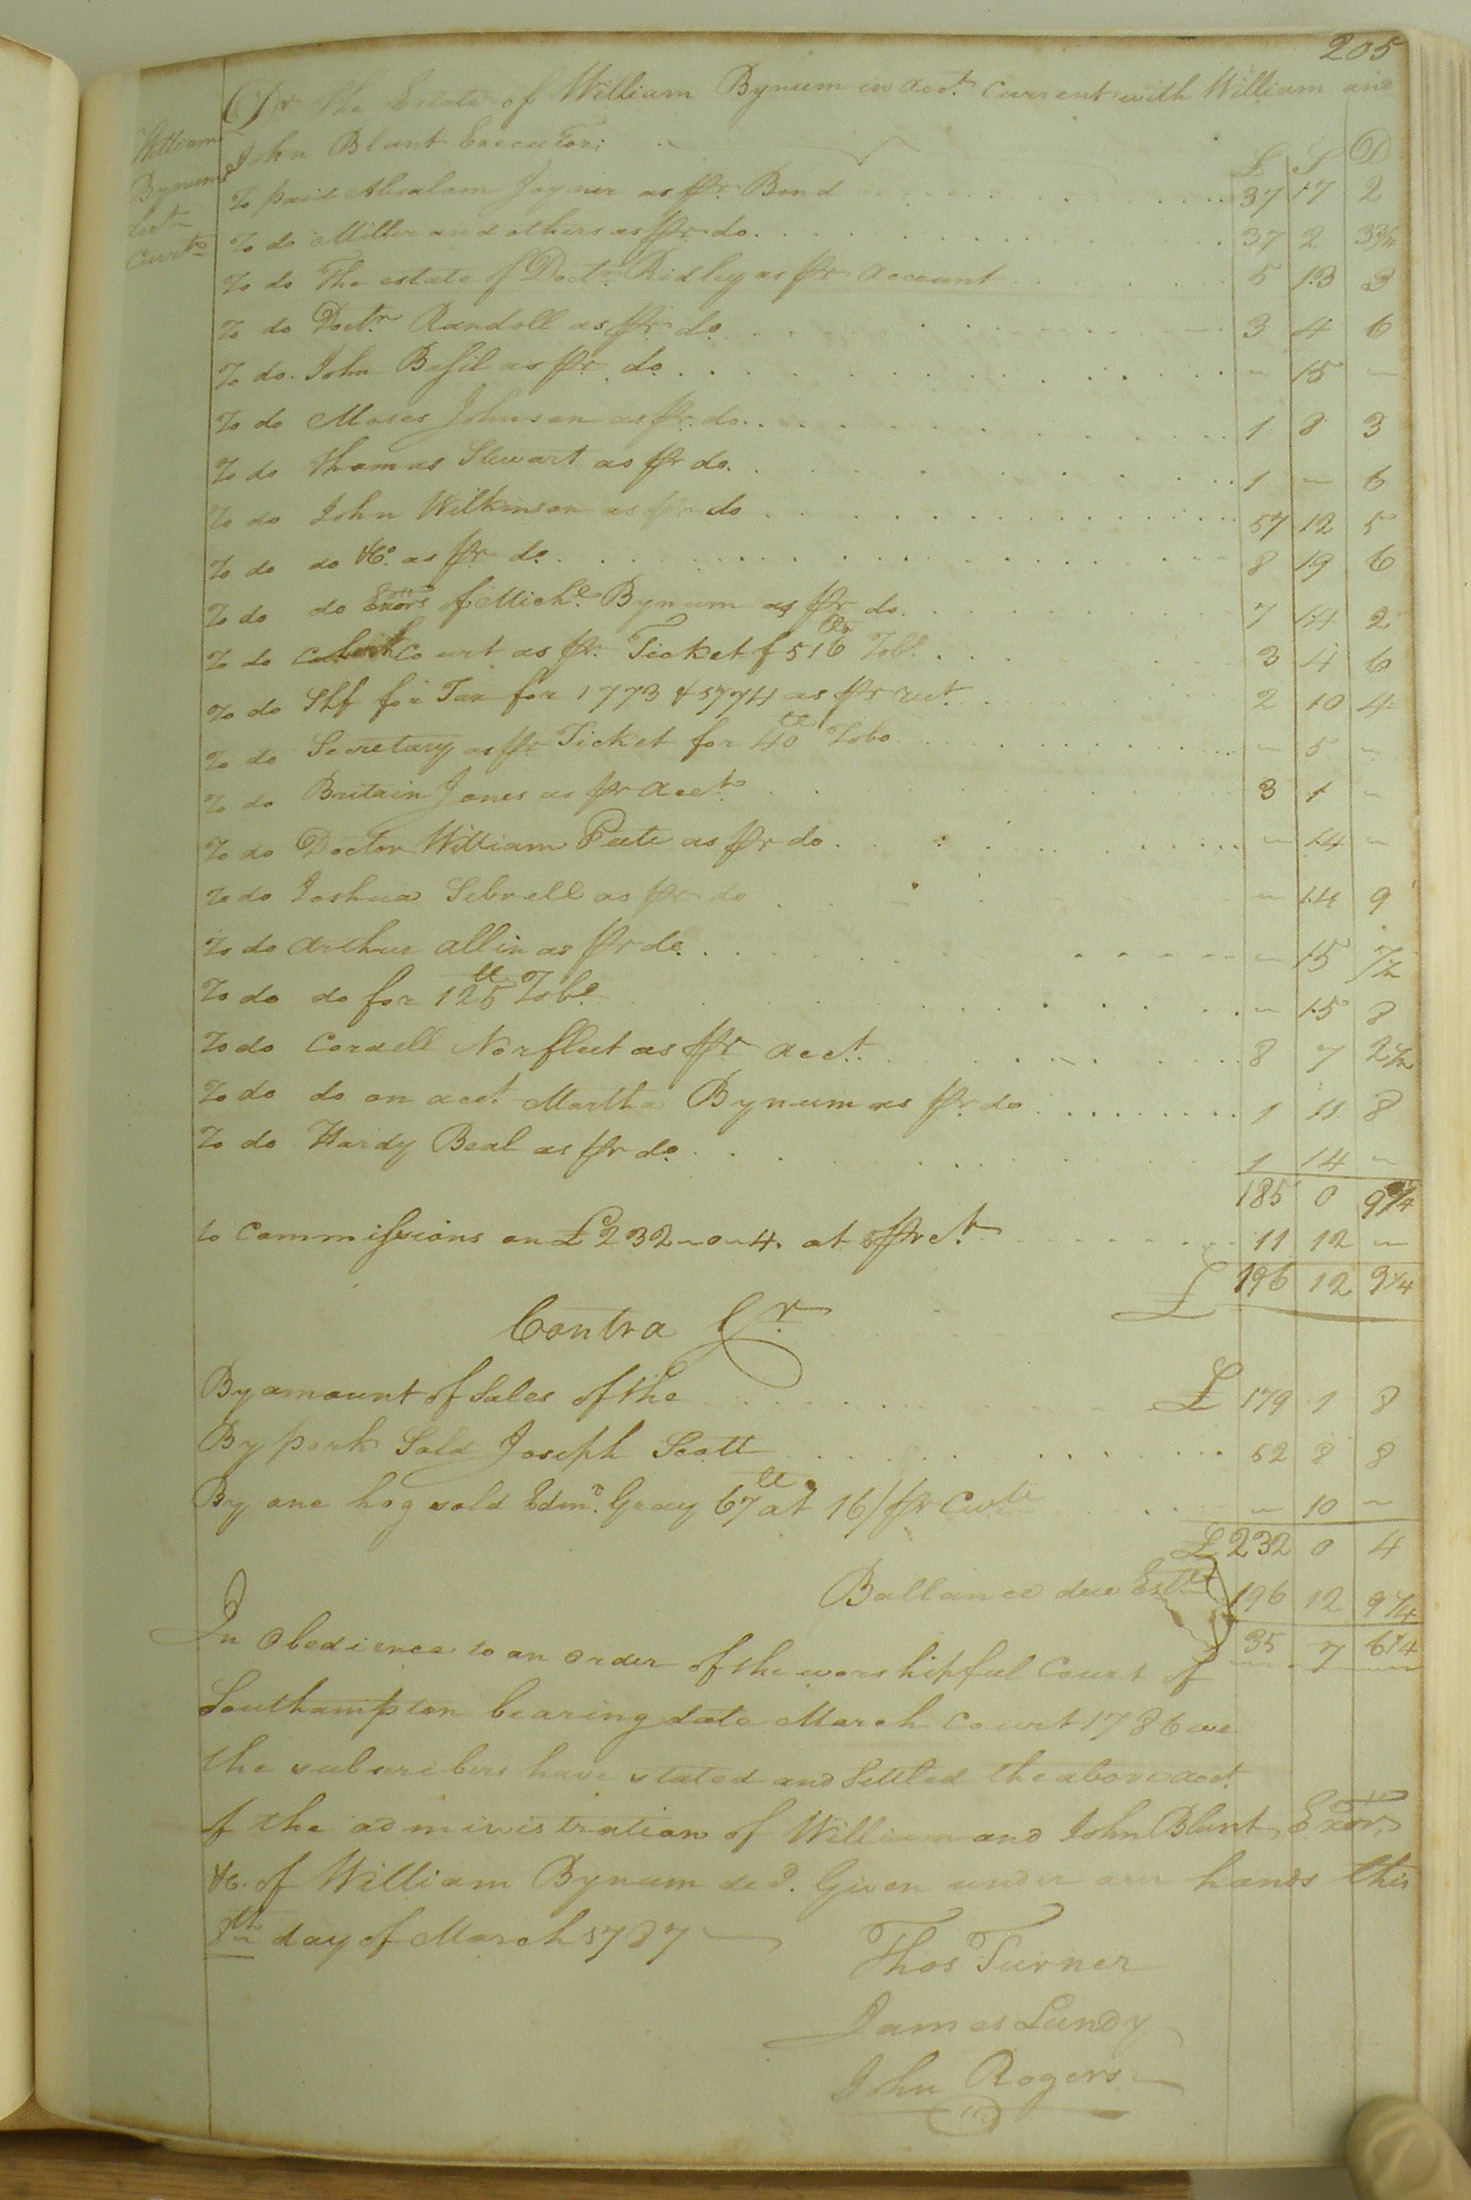 205
Dr The Estate of William Bynum in acct. Current with William and
John Blunt Executors
William
Bynums
Acct
Currt
£ S D
To paid Abralam Joyner as pr. Bond 37 17 2
To do Miller and others as pr do. 37 2 3 3/4
To do The estate of Doctr. Ridley as pr account 5 13 3
To do Doctr. Randoll as pr do 3 4 6
To do. John Basil as pr. do. ~ 15 ~
To do Moses Johnson as pr. do. 1 8 3
To do Thomas Stewart as pr do. 1 ~ 6
To do John Wilkinson as pr do 57 12 5
To do do &Co. as pr do. 8 19 6
To do do Exors of Miche. Bynum as pr do. 7 14 2
To do Court as pr. Ticket f 516 Tobo. 3 4 6
To do Shf for Tax for 1773 & 5774 as pr rect. 2 10 4
To do Secretary as pr Ticket for 40 ll Tobo ~ 5 ~
To do Britain Jones as pr acct. 3 1 ~
To do Doctor William Peete as pr do. ~ 14 ~
To do Joshua Sebrell as pr do ~ 14 9
To do Arthur allin as pr do. ~ 15 7 1/2
To do do for 125 ll Tobo. ~ 15 8
To do Cordell Norfleet as pr acct. 8 7 2 1/2
To do do on acct. Martha Bynum as pr do 1 11 8
To do Hardy Beal as pr do. 1 14 ~
185 0 9 1/4
to Commissions on £232~0~4. at 5 pr ct. 11 12 ~
£ 196 12 9 1/4
Contra Cr.
By amount of Sales of the £ 179 1 8
By pork Sold Joseph Scott 52 8 8
By one hog sold Edmd. Gray 67 ll at 16/ pr Cwt ~ 10 ~
£ 232 0 4
Ballance due Estt. 196 12 9 1/4
35 7 6 1/4
In Obedience to an order of the worshipful Court of
Southampton bearing date March Court 1786 we
the subscribers have stated and Settled the above acct.
of the administration of William and John Blunt Exors.
&c. of William Bynum decd. Given under our hands this
8th day of March 1787
Thos Turner
James Lundy
John Rogers